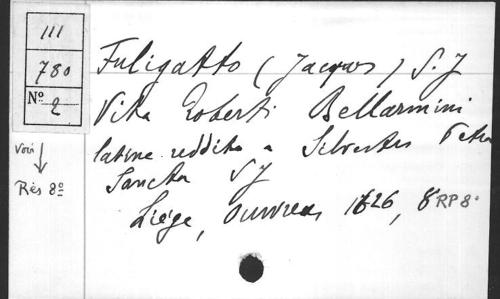 111
780
Nº 2
Voir
Rès 8º
Fuligatto (Jacques) S. J
Vita Roberti Bellarmini
latine reddita a Silvestro Petra
Sancta S J
Liège, Ouwerx, 1626, 8 RP 8º